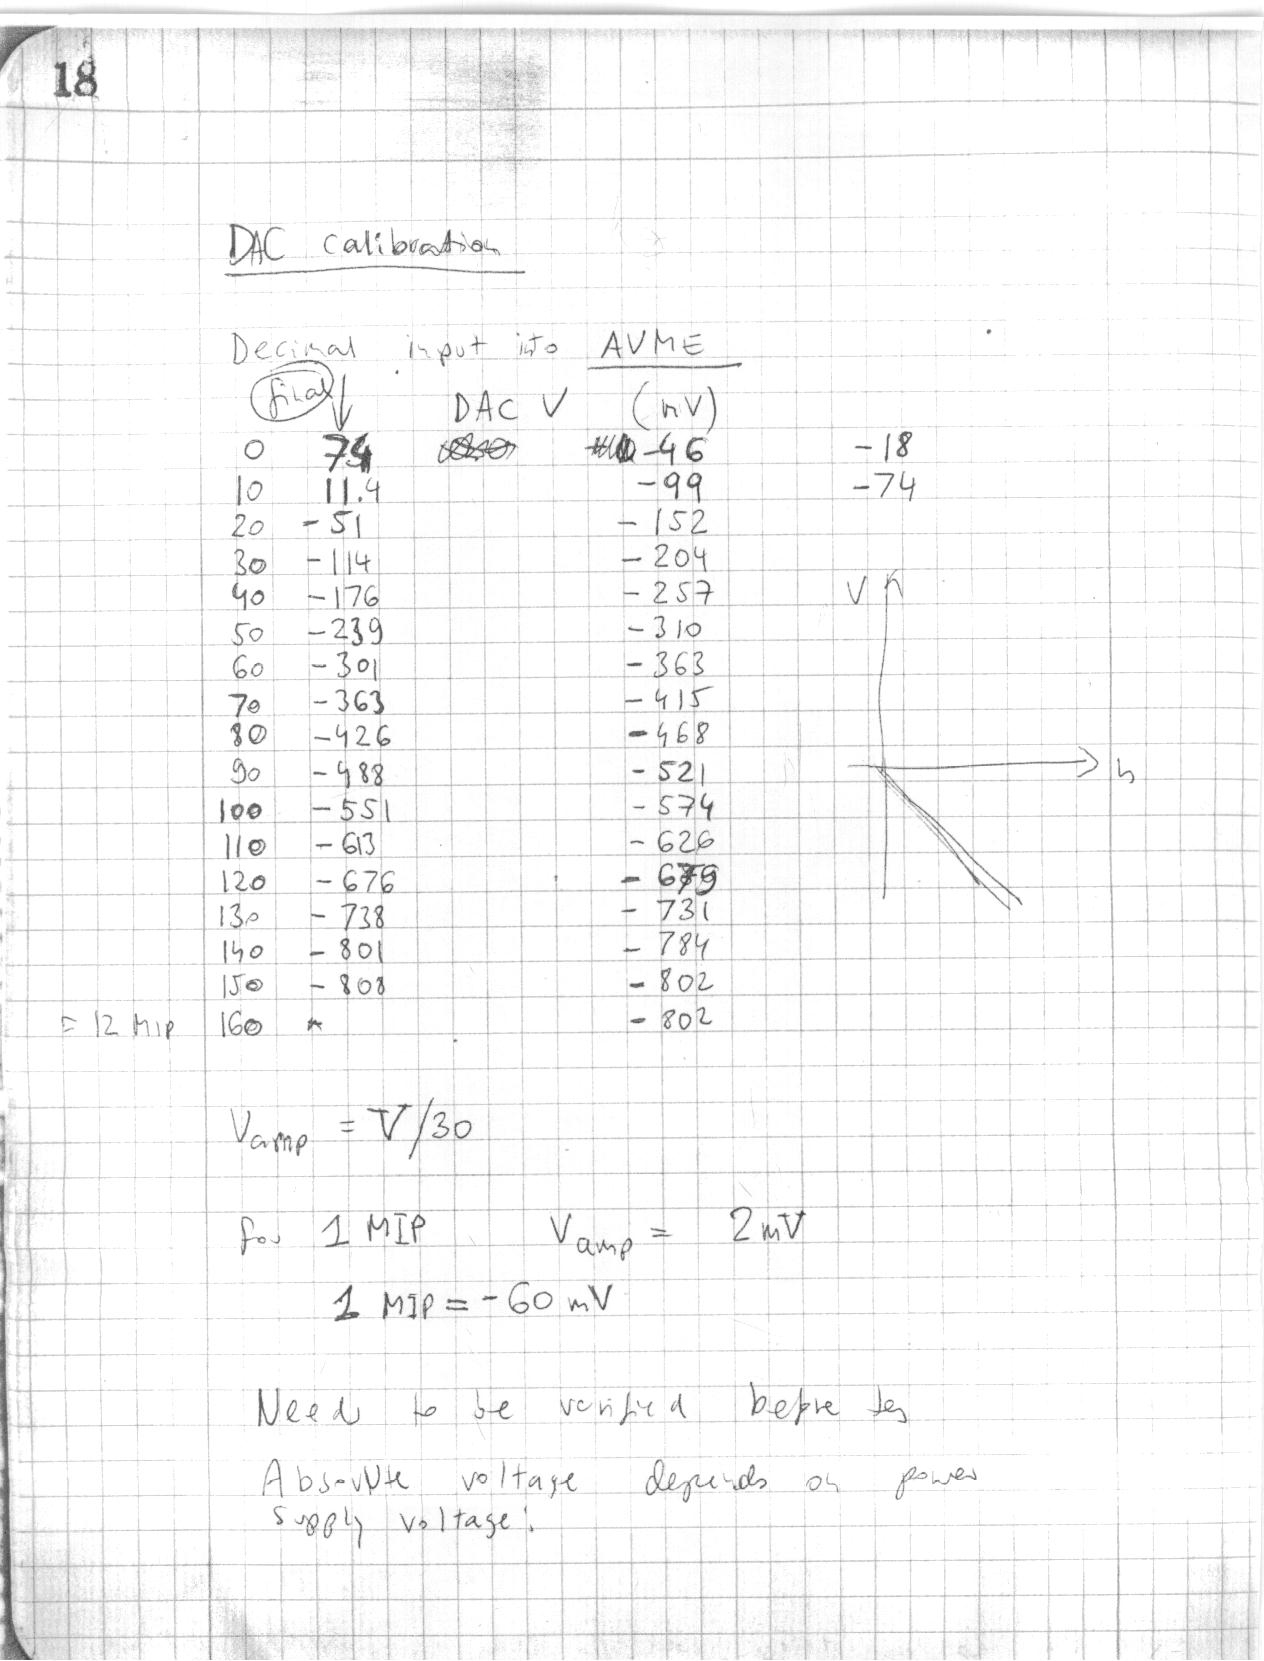 18
DAC calibration
Decimal input into AVME
final DAC V (mV)
0 74 -46 -18
10 11.4 -99 -74
20 -51 -152
30 -114 -204
40 -176 -257
50 -239 -310
60 -301 -363
70 -363 -415
80 -426 -468
90 -488 -521
100 -551 -574
110 -613 -626
120 -676 -679
130 -738 -731
140 -801 -784
150 -808 -802
= 12 MIP 160 -802
V
n
Vamp = V/30
for 1 MIP Vamp = 2 mV
1 MIP = -60 mV
Need to be verified before
Absolute voltage depends on power
supply voltage!